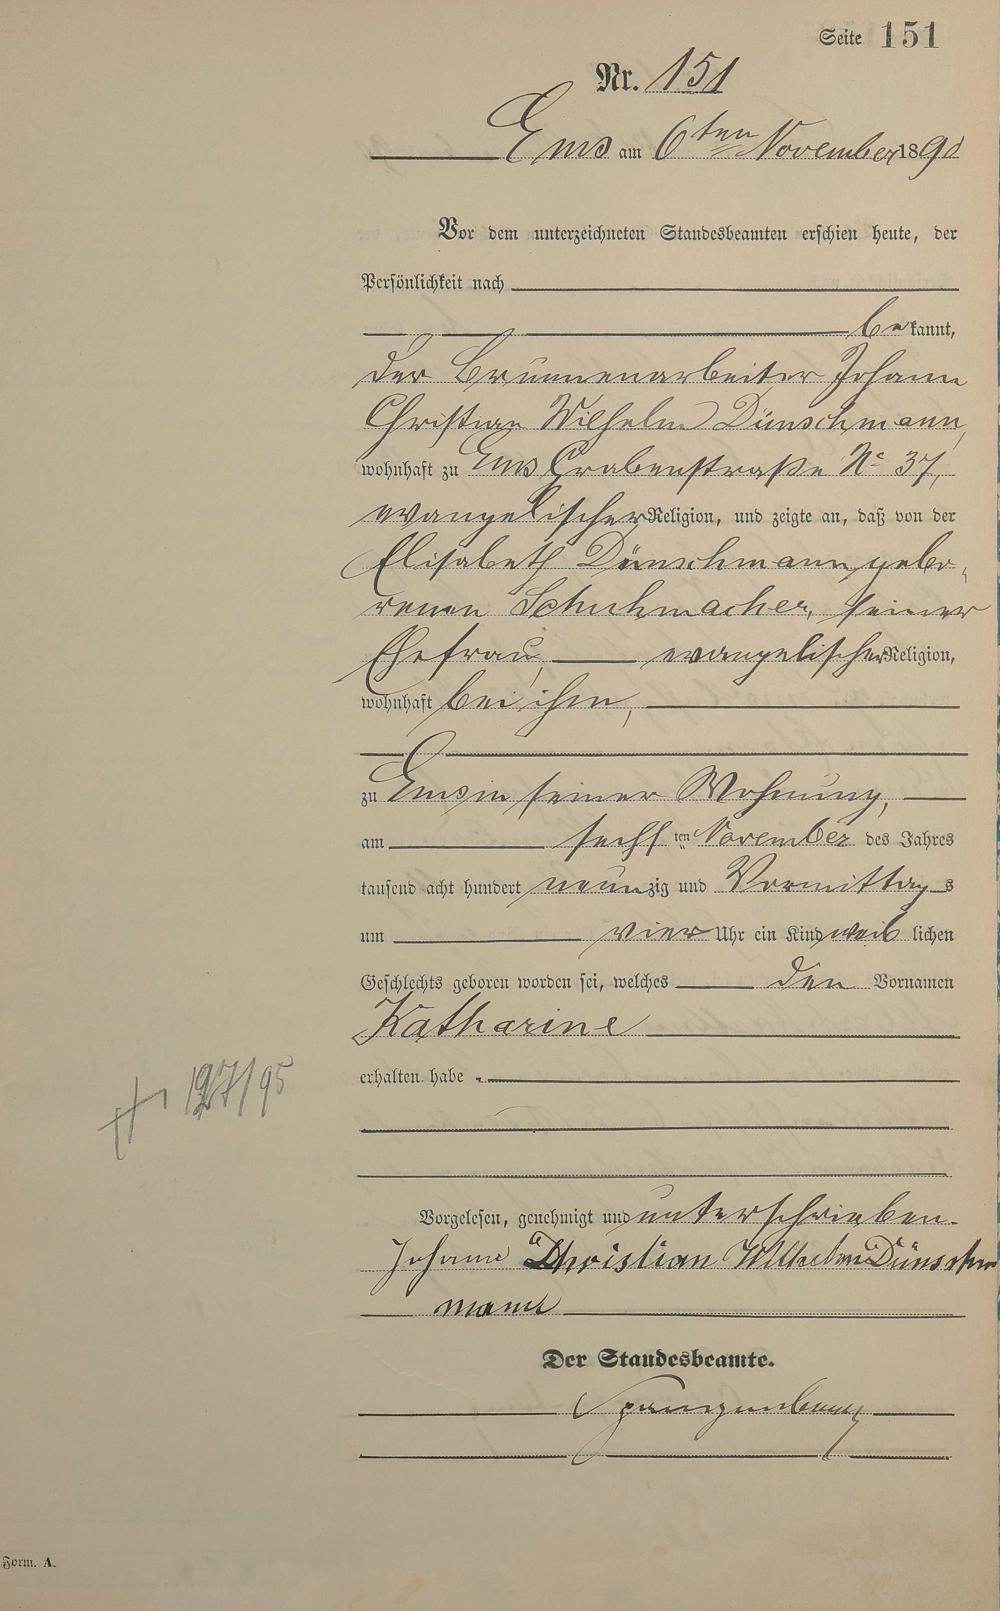 Seite 151
Nr. 151
Ems am 6ten November 1890
Vor dem unterzeichneten Standesbeamten erschien heute, der
Persönlichkeit nach
bekannt,
der Brunnenarbeiter Johann
Christian Wilhelm Dünschmann,
wohnhaft zu Ems Grabenstraße No 37,
evangelischer Religion, und zeigte an, daß von der
Elisabeth Dünschmann gebo-
renen Schuhmacher, seiner
Ehefrau, evangelischer Religion,
wohnhaft bei ihm,
zu Ems in seiner Wohnung,
am sechsten November des Jahres
tausend acht hundert neunzig und Vormittags
um vier Uhr ein Kind weiblichen
Geschlechts geboren worden sei, welches den Vornamen
Katharine
erhalten habe.
127/95
Vorgelesen, genehmigt und unterschrieben.
Johann Christian Wilhelm Dünsch
mann
Der Standesbeamte.
Spangenberg
Form. A.